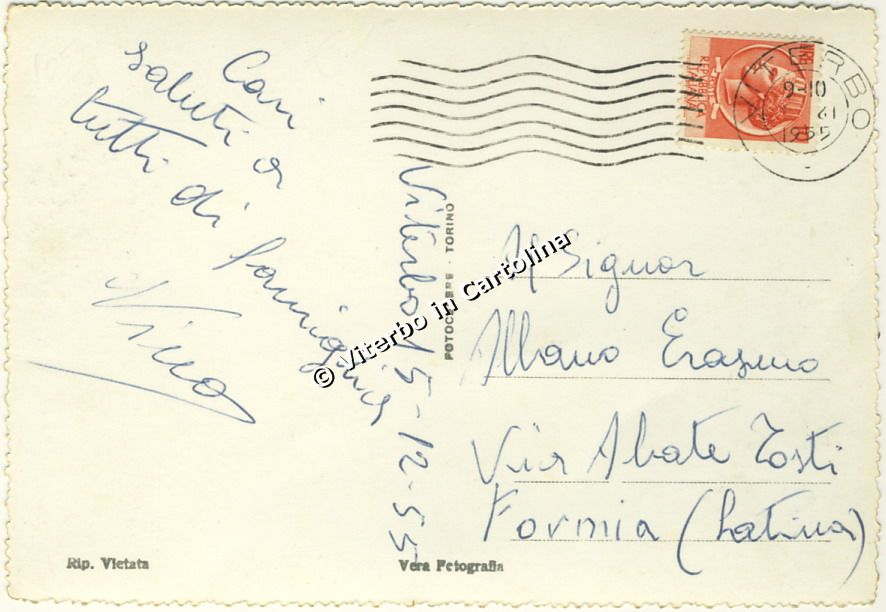 Cari
saluti a
tutti di famiglia
Nino
Viterbo 15-12-55
FOTOCELERE - TORINO
© Viterbo in Cartolina
VITERBO
9-10
1955
Al Signor
Erasmo
Via Abate Tosti
Formia (Latina)
Rip. Vietata
Vera Fotografia